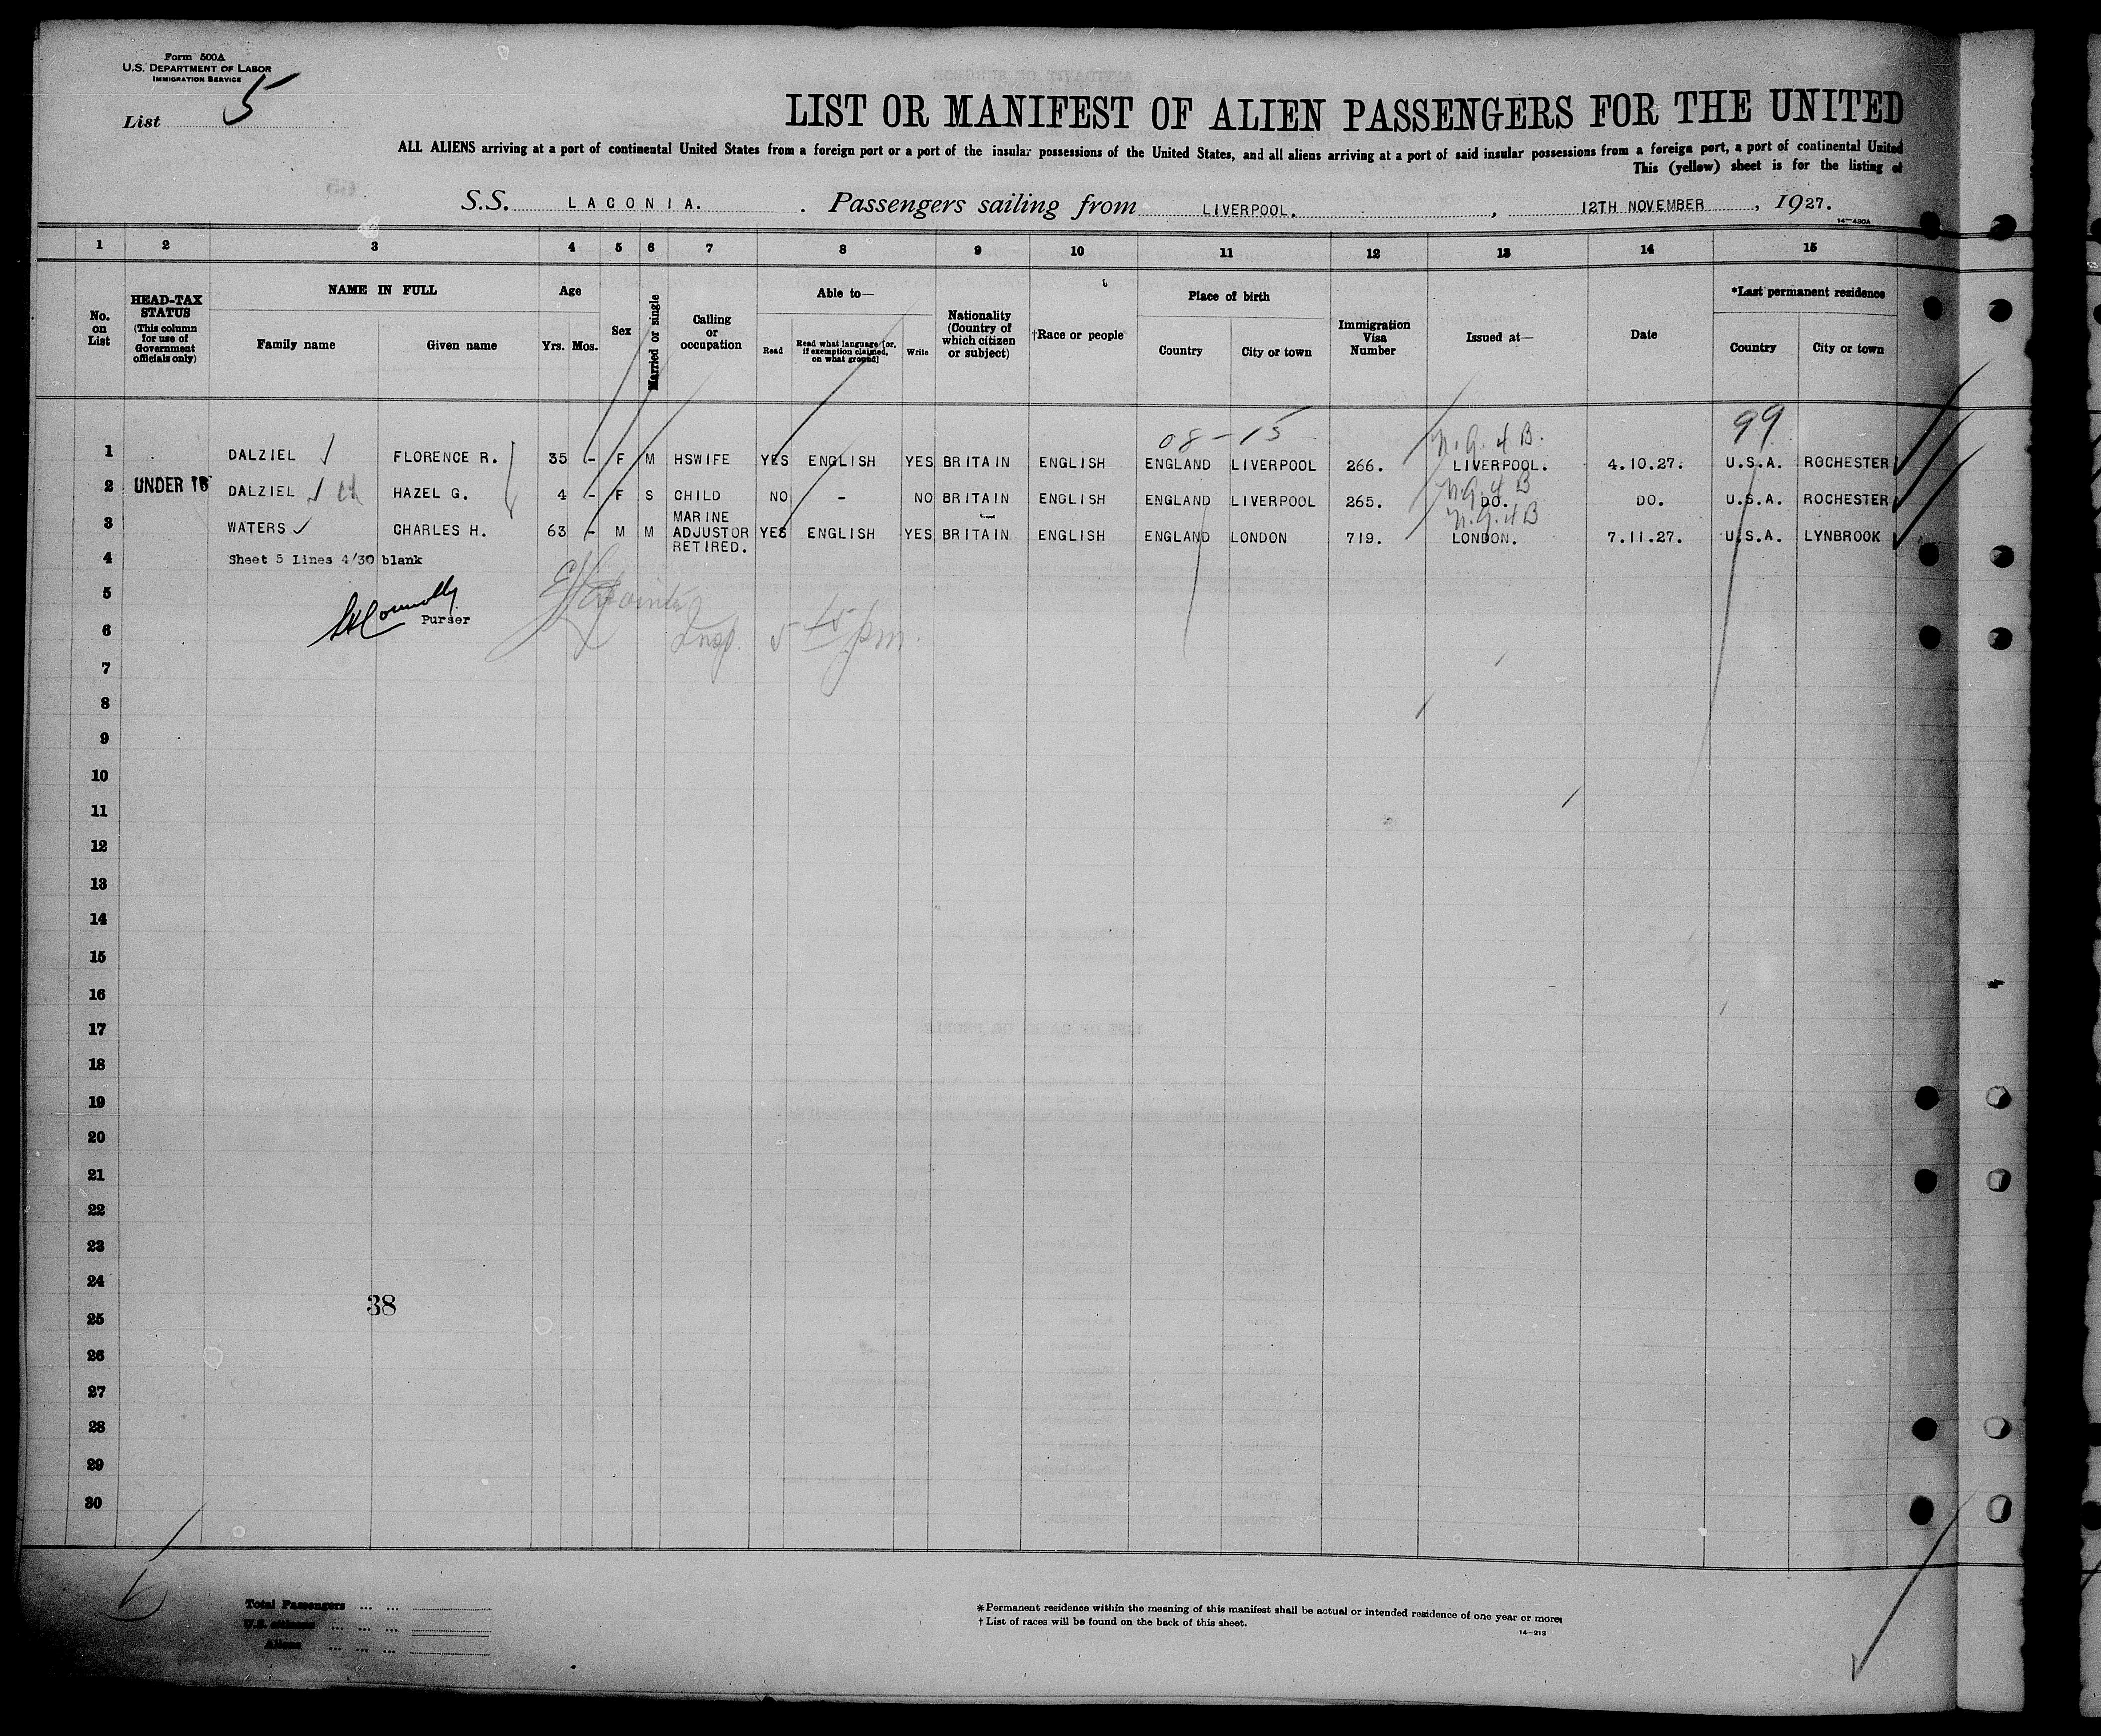 Form 500A
U.S. DEPARTMENT OF LABOR
IMMIGRATION SERVICE
List 5
LIST OR MANIFEST OF ALIEN PASSENGERS FOR THE UNITED
ALL ALIENS arriving at a port of continental United States from a foreign port or a port of the insular possessions of the United States, and all aliens arriving at a port of said insular possessions from a foreign port, a port of continental United
This (yellow) sheet is for the listing of
S.S. LACONIA. Passengers sailing from LIVERPOOL. , 12TH NOVEMBER , 1927.
14—430A
1 2 3 4 5 6 7 8 9 10 11 12 13 14 15
No. on List
HEAD-TAX STATUS (This column for use of Government officials only)
NAME IN FULL
Family name Given name
Age
Yrs. Mos.
Sex
Married or single
Calling or occupation
Able to—
Read Read what language [or, if exemption claimed, on what ground] Write
Nationality (Country of which citizen or subject)
†Race or people
Place of birth
Country City or town
Immigration Visa Number
Issued at—
Date
*Last permanent residence
Country City or town
08-15 N.Q.4B. 99
1 DALZIEL FLORENCE R. 35 - F M HSWIFE YES ENGLISH YES BRITAIN ENGLISH ENGLAND LIVERPOOL 266. LIVERPOOL. 4.10.27. U.S.A. ROCHESTER
N.Q.4B
2 UNDER 16 DALZIEL HAZEL G. 4 - F S CHILD NO - NO BRITAIN ENGLISH ENGLAND LIVERPOOL 265. DO. DO. U.S.A. ROCHESTER
N.Q.4B
3 WATERS CHARLES H. 63 - M M MARINE ADJUSTOR RETIRED. YES ENGLISH YES BRITAIN ENGLISH ENGLAND LONDON 719. LONDON. 7.11.27. U.S.A. LYNBROOK
4 Sheet 5 Lines 4/30 blank
5 Connolly
Purser
6 Insp. 5 45 pm.
7
8
9
10
11
12
13
14
15
16
17
18
19
20
21
22
23
24
38
25
26
27
28
29
30
Total Passengers ... ...
U.S. citizens ... ... ...
Aliens ... ... ...
*Permanent residence within the meaning of this manifest shall be actual or intended residence of one year or more.
†List of races will be found on the back of this sheet.
14—213